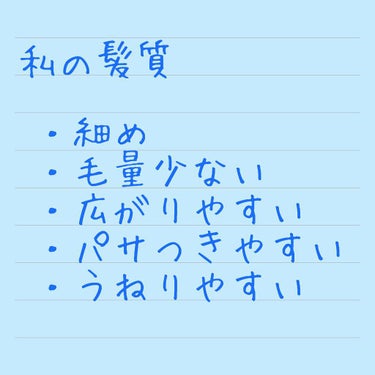 私の髪質
・細め
・毛量少ない
・広がりやすい
・パサつきやすい
・うねりやすい